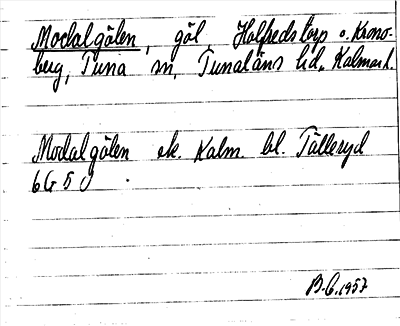 Modalgölen, göl Halfredstorp o. Krono-
berg, Tuna sn, Tunaläns hd, Kalmar l.
Modalgölen ek. Kalm. bl. Tålleryd
6G 5
B.G. 1957